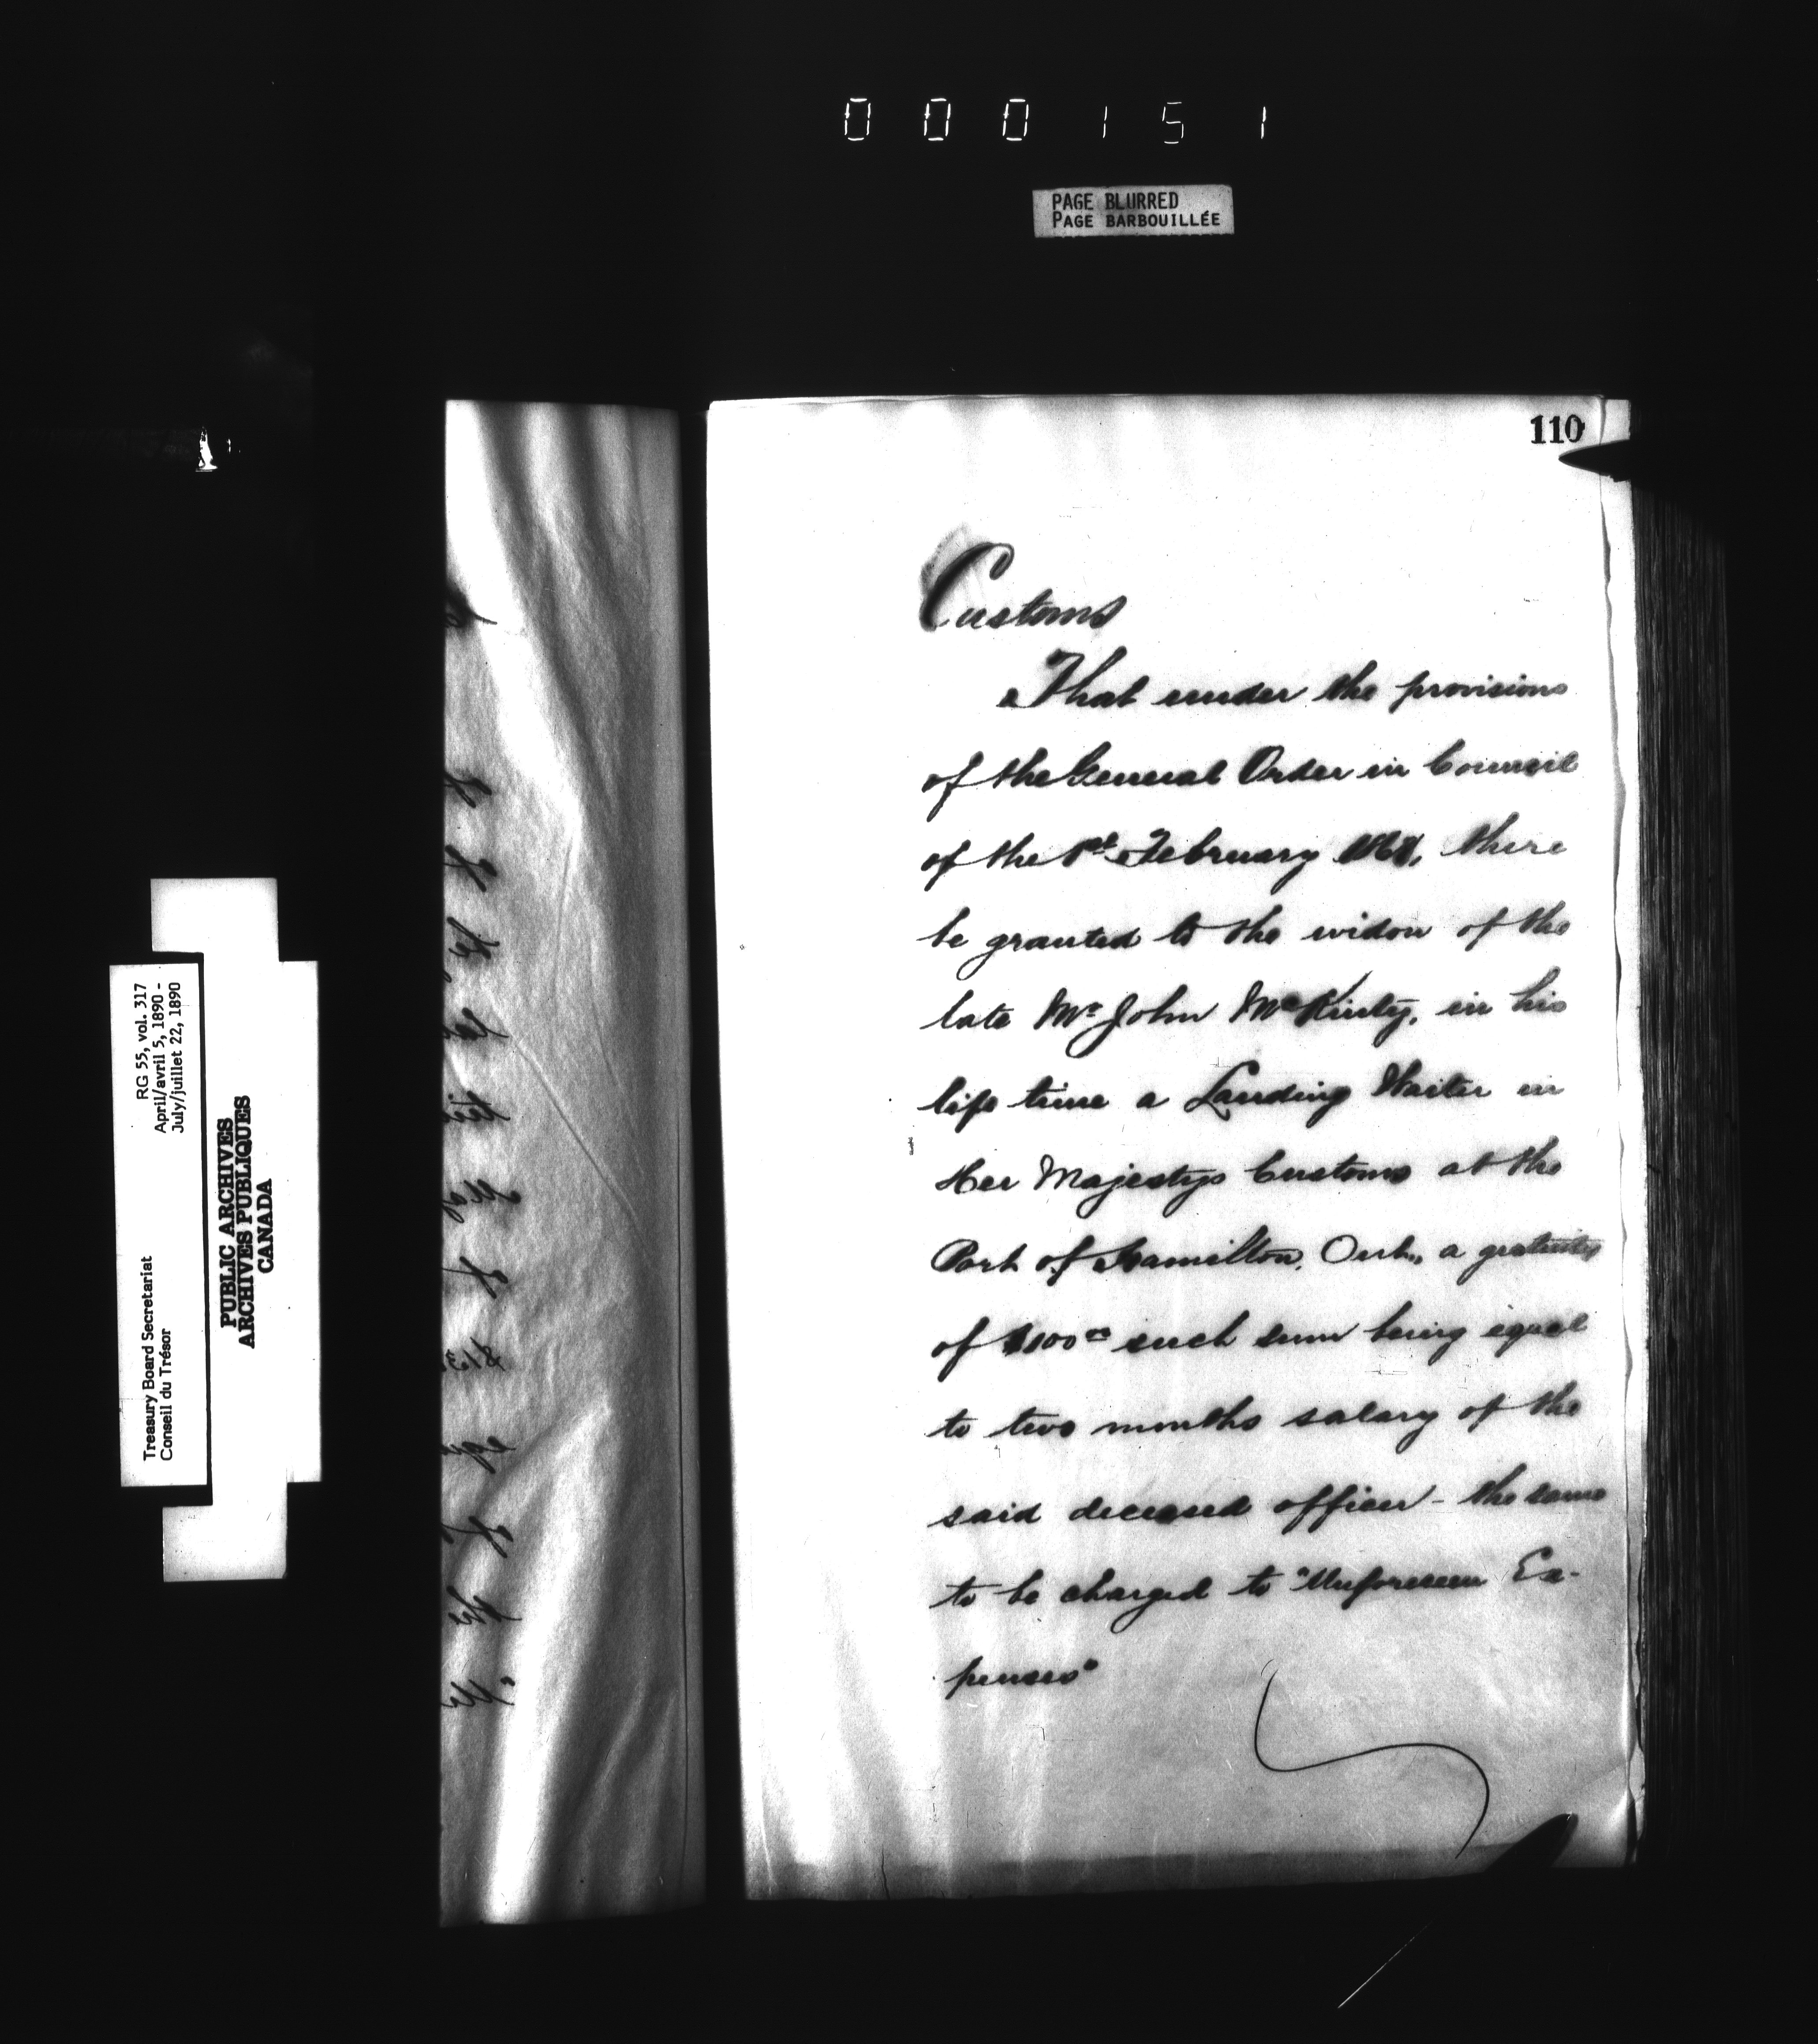 000151
PAGE BLURRED
PAGE BARBOUILLÉE
110
Customs
That under the provisions
of the General Order in Council
of the 1st February there
be granted to the widow of the
late Mr John McKinty, in his
life time a Landing Waiter in
Her Majestys Customs at the
Port of Hamilton, Ont., a gratuity
of $100 such sum being equal
to two months salary of the
said deceased officer - the same
to be charged to "Unforeseen Ex-
penses"
RG 55, vol. 317
April/avril 5, 1890 -
July/juillet 22, 1890
Treasury Board Secretariat
Conseil du Trésor
PUBLIC ARCHIVES
ARCHIVES PUBLIQUES
CANADA